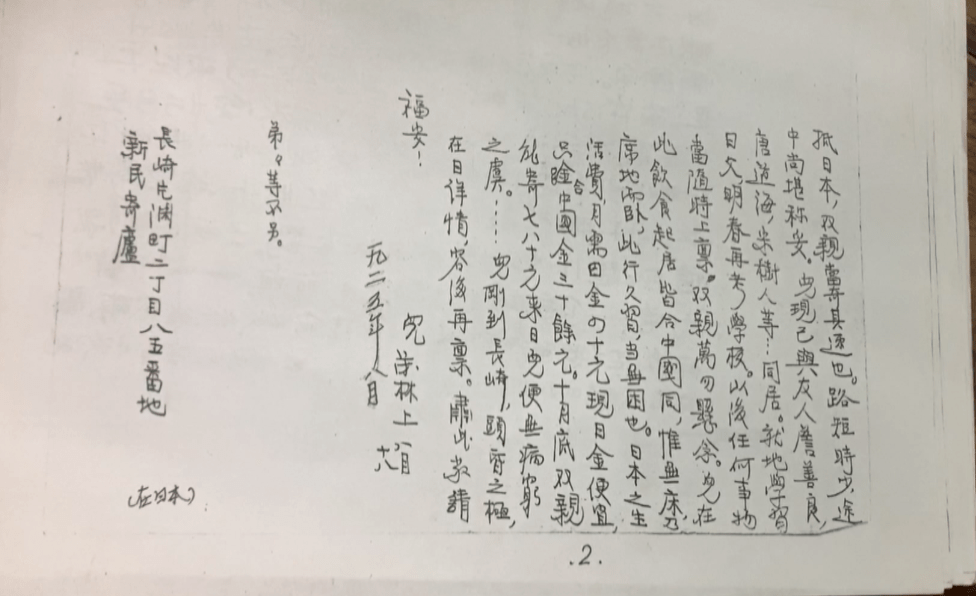 抵日本，双親當奇其速也。路短時少，途
中尚堪称安。児現已與友人詹善良，
唐道海，朱樹人等…同居。就地學習
日文，明春再考學校。以後任何事物
當隨時上禀。双親萬勿懸念。児在
此飲食起居皆合中國同，惟無床，
席地而卧，此行久習，当無困也。日本之生
活費，月需日金四十元，現日金便宜，
只合中國金三十餘元。十月底双親
能寄七八十元来日，児便無病窮
之虞。……児剛到長崎，頭昏之極，
在日详情，容後再禀。肅此敬請
福安！
児 林上 八月十八
一九二五年八月
弟々等不另。
長崎片淵町二丁目八五番地
新民寄廬
（在日本）
.2.